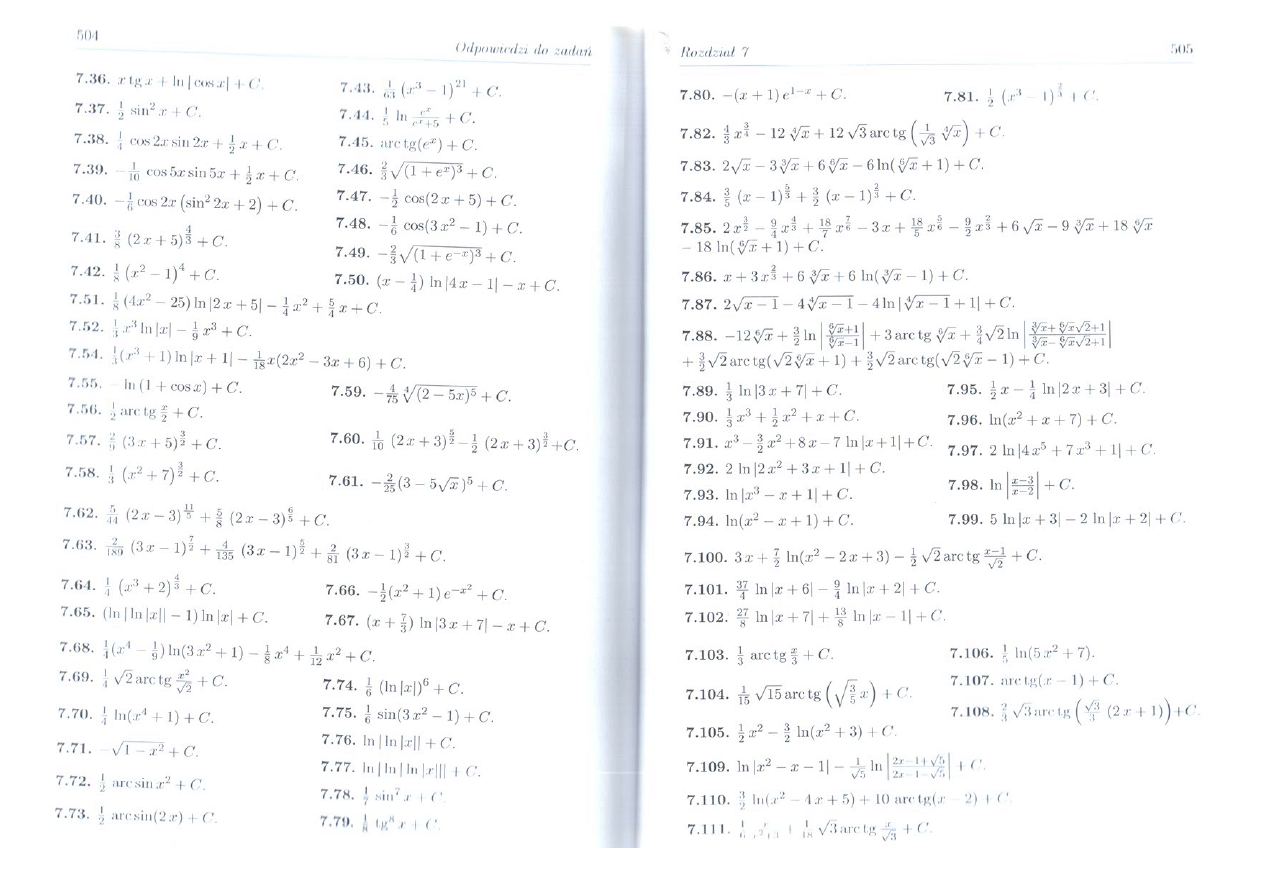 504
Odpowiedzi do zadań
7.36. x tg x + ln |cos x| + C.
7.37. 1/2 sin² x + C.
7.38. 1/4 cos 2x sin 2x + 1/2 x + C.
7.39. −1/10 cos 5x sin 5x + 1/2 x + C.
7.40. −1/6 cos 2x (sin² 2x + 2) + C.
7.41. 3/8 (2x + 5)^(4/3) + C.
7.42. 1/8 (x² − 1)⁴ + C.
7.43. 1/63 (x³ − 1)²¹ + C.
7.44. 1/5 ln e^x/(e^x+5) + C.
7.45. arc tg(e^x) + C.
7.46. 2/3 √((1 + e^x)³) + C.
7.47. −1/2 cos(2x + 5) + C.
7.48. −1/6 cos(3x² − 1) + C.
7.49. −2/3 √((1 + e^(−x))³) + C.
7.50. (x − 1/4) ln |4x − 1| − x + C.
7.51. 1/8 (4x² − 25) ln |2x + 5| − 1/4 x² + 5/4 x + C.
7.52. 1/3 x³ ln |x| − 1/9 x³ + C.
7.54. 1/3 (x³ + 1) ln |x + 1| − 1/18 x(2x² − 3x + 6) + C.
7.55. − ln (1 + cos x) + C.
7.56. 1/2 arc tg x/2 + C.
7.57. 2/9 (3x + 5)^(3/2) + C.
7.58. 1/3 (x² + 7)^(3/2) + C.
7.59. −4/75 ∜((2 − 5x)⁵) + C.
7.60. 1/10 (2x + 3)^(5/2) − 1/2 (2x + 3)^(3/2) + C.
7.61. −2/25 (3 − 5√x)⁵ + C.
7.62. 5/44 (2x − 3)^(11/5) + 5/8 (2x − 3)^(6/5) + C.
7.63. 2/189 (3x − 1)^(7/2) + 4/135 (3x − 1)^(5/2) + 2/81 (3x − 1)^(3/2) + C.
7.64. 1/4 (x³ + 2)^(4/3) + C.
7.65. (ln | ln |x|| − 1) ln |x| + C.
7.66. −1/2 (x² + 1) e^(−x²) + C.
7.67. (x + 7/3) ln |3x + 7| − x + C.
7.68. 1/4 (x⁴ − 1/9) ln(3x² + 1) − 1/8 x⁴ + 1/12 x² + C.
7.69. 1/4 √2 arc tg x²/√2 + C.
7.70. 1/4 ln(x⁴ + 1) + C.
7.71. −√(1 − x²) + C.
7.72. 1/2 arc sin x² + C.
7.73. 1/2 arc sin(2x) + C.
7.74. 1/6 (ln |x|)⁶ + C.
7.75. 1/6 sin(3x² − 1) + C.
7.76. ln | ln |x|| + C.
7.77. ln | ln | ln |x||| + C.
7.78. 1/7 sin⁷ x + C.
7.79. 1/8 tg⁸ x + C.
Rozdział 7
505
7.80. −(x + 1) e^(1−x) + C.
7.81. 1/2 (x³ − 1)^(2/3) + C.
7.82. 4/3 x^(3/4) − 12 ∜x + 12 √3 arc tg (1/√3 ∜x) + C.
7.83. 2√x − 3∛x + 6 ⁶√x − 6 ln(⁶√x + 1) + C.
7.84. 3/5 (x − 1)^(5/3) + 3/2 (x − 1)^(2/3) + C.
7.85. 2x^(3/2) − 9/4 x^(4/3) + 18/7 x^(7/6) − 3x + 18/5 x^(5/6) − 9/2 x^(2/3) + 6 √x − 9 ∛x + 18 ⁶√x
− 18 ln(⁶√x + 1) + C.
7.86. x + 3x^(2/3) + 6 ∛x + 6 ln(∛x − 1) + C.
7.87. 2√(x − 1) − 4∜(x − 1) − 4 ln |∜(x − 1) + 1| + C.
7.88. −12 ⁶√x + 3/2 ln |(⁶√x+1)/(⁶√x−1)| + 3 arc tg ⁶√x + 3/4 √2 ln |(∛x+ ⁶√x√2+1)/(∛x− ⁶√x√2+1)|
+ 3/2 √2 arc tg(√2 ⁶√x + 1) + 3/2 √2 arc tg(√2 ⁶√x − 1) + C.
7.89. 1/3 ln |3x + 7| + C.
7.90. 1/3 x³ + 1/2 x² + x + C.
7.91. x³ − 3/2 x² + 8x − 7 ln |x + 1| + C.
7.92. 2 ln |2x² + 3x + 1| + C.
7.93. ln |x³ − x + 1| + C.
7.94. ln(x² − x + 1) + C.
7.95. 1/2 x − 1/4 ln |2x + 3| + C.
7.96. ln(x² + x + 7) + C.
7.97. 2 ln |4x⁵ + 7x³ + 1| + C.
7.98. ln |(x−3)/(x−2)| + C.
7.99. 5 ln |x + 3| − 2 ln |x + 2| + C.
7.100. 3x + 7/2 ln(x² − 2x + 3) − 1/2 √2 arc tg (x−1)/√2 + C.
7.101. 37/4 ln |x + 6| − 9/4 ln |x + 2| + C.
7.102. 27/8 ln |x + 7| + 13/8 ln |x − 1| + C.
7.103. 1/3 arc tg x/3 + C.
7.104. 1/15 √15 arc tg (√(3/5) x) + C.
7.105. 1/2 x² − 3/2 ln(x² + 3) + C.
7.106. 1/5 ln(5x² + 7).
7.107. arc tg(x − 1) + C.
7.108. 2/3 √3 arc tg (√3/3 (2x + 1)) + C.
7.109. ln |x² − x − 1| − 1/√5 ln |(2x−1+√5)/(2x−1−√5)| + C.
7.110. 3/2 ln(x² − 4x + 5) + 10 arc tg(x − 2) + C.
7.111. 1/6 x/(x²+3) + 1/18 √3 arc tg x/√3 + C.